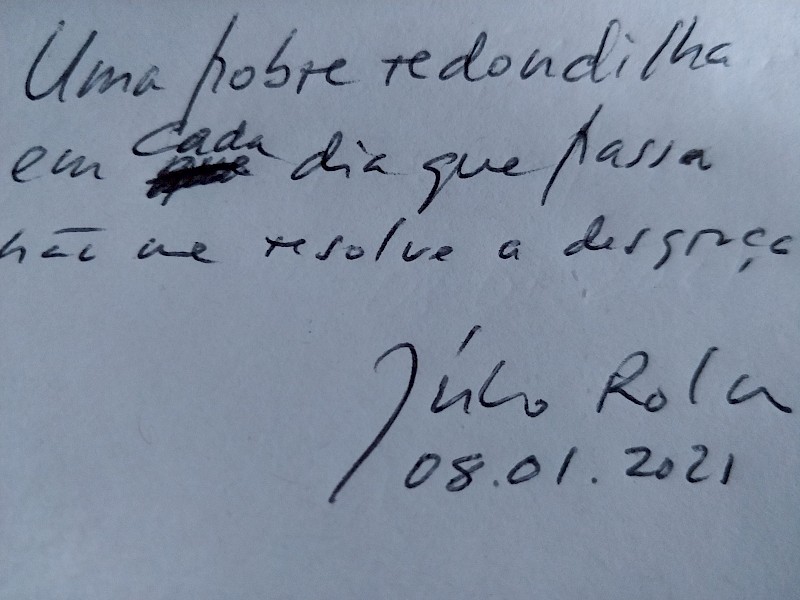 Uma pobre redondilha
em cada dia que passa
não me resolve a desgraça
Júlio Rola
08.01.2021